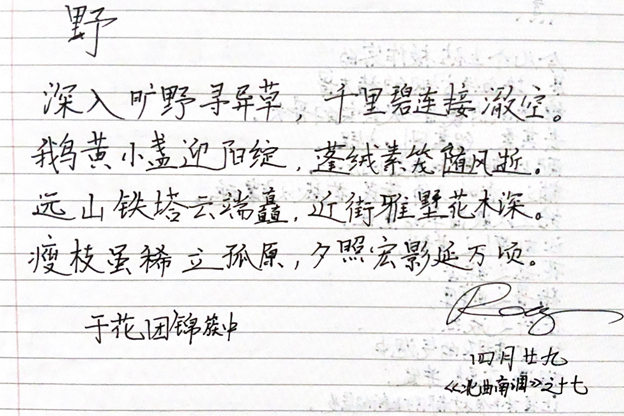 野
深入旷野寻异草，千里碧连接澈空。
鹅黄小盏迎阳绽，蓬绒素笼随风逝。
远山铁塔云端矗，近街雅墅花木深。
瘦枝虽稀立孤原，夕照宏影延万顷。
于花团锦簇中
四月廿九
《北曲南调》之十七